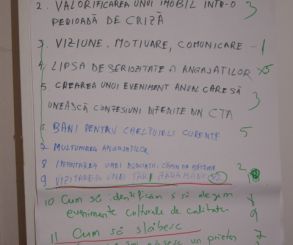 2. VALORIFICAREA UNUI IMOBIL INTR-O
PERIOADĂ DE CRIZĂ 3
3. VIZIUNE, MOTIVARE, COMUNICARE - 1
4 LIPSA DE SERIOZITATE A ANGAJATILOR 5
5 CREAREA UNUI EVENIMENT ANUAL CARE SĂ
UNEASCĂ CONFESIUNI DIFERITE DIN CTA 3
6 BANI PENTRU CHELTUIELI CURENTE 5
7 MULTUMIREA ANGAJATILOR
8 UNEI 2
9 VIZITAREA UNEI TARI
10 Cum să identificăm si să alegem 8
evenimente culturale de calitate 9
11 Cum să slăbesc
un prieten 7